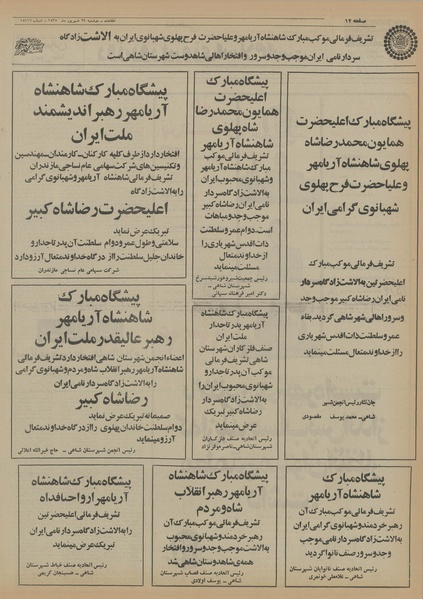 صفحه ۱۲
تشریف فرمائی موکب مبارک شاهنشاه آریامهر و علیاحضرت فرح پهلوی شهبانوی ایران به الاشت زادگاه
سردار نامی ایران موجب وجد و سرور و افتخار اهالی شاهدوست شهرستان شاهی است
پیشگاه مبارک اعلیحضرت
همایون محمدرضا شاه
پهلوی شاهنشاه آریامهر
و علیاحضرت فرح پهلوی
شهبانوی گرامی ایران
تشریف فرمائی موکب مبارک
اعلیحضرتین به الاشت زادگاه سردار
نامی ایران رضاشاه کبیر موجب وجد
و سرور اهالی شهرشاهی گردید. بقاء
عمر و سلطنت ذات اقدس شهریاری
را از خداوند متعال مسئلت مینماید
جان نثار رئیس انجمن شهر
شاهی - محمد یوسف مقصودی
پیشگاه مبارک
اعلیحضرت
همایون محمدرضا
شاه پهلوی
شاهنشاه آریامهر
تشریف فرمائی موکب
مبارک شاهنشاه آریامهر
و شهبانوی محبوب ایران
به الاشت زادگاه سردار
نامی ایران رضاشاه کبیر
موجب وجد و مباهات
است. دوام عمر و سلطنت
ذات اقدس شهریاری را
از خداوند متعال
مسئلت مینماید
رئیس جمعیت شیر و خورشید سرخ
شهرستان شاهی -
پیشگاه مبارک شاهنشاه
آریامهر رهبر اندیشمند
ملت ایران
افتخار دارد از طرف کلیه کارکنان - کارمندان - مهندسین
و تکنیسین های شرکت سهامی عام نساجی مازندران
تشریف فرمائی شاهنشاه آریامهر و شهبانوی گرامی
را به الاشت زادگاه
اعلیحضرت رضاشاه کبیر
تبریک عرض نماید
سلامتی و طول عمر و دوام سلطنت آن پدر تاجدار و
خاندان جلیل سلطنت را از درگاه خداوند متعال آرزو دارد
شرکت سهامی عام نساجی مازندران
پیشگاه مبارک
شاهنشاه آریامهر
رهبر عالیقدر ملت ایران
اعضاء انجمن شهرستان شاهی افتخار دارد تشریف فرمائی
شاهنشاه آریامهر رهبر انقلاب شاه و مردم و شهبانوی گرامی
را به الاشت زادگاه سردار نامی ایران
رضاشاه کبیر
صمیمانه تبریک عرض نماید
دوام سلطنت خاندان پهلوی را از درگاه خداوند متعال
آرزو مینماید
رئیس انجمن شهرستان شاهی -
پیشگاه مبارک شاهنشاه
آریامهر پدر تاجدار
ملت ایران
صنف فلزکاران شهرستان
شاهی تشریف فرمائی
موکب آن پدر تاجدار و
شهبانوی محبوب ایران را
به الاشت زادگاه سردار
رضاشاه کبیر تبریک
عرض مینماید
رئیس اتحادیه صنف فلزکاران
پیشگاه مبارک
شاهنشاه آریامهر
تشریف فرمائی موکب مبارک آن
رهبر خردمند و شهبانوی گرامی ایران
به الاشت زادگاه سردار نامی موجب
وجد و سرور صنف نانوا گردید
رئیس اتحادیه صنف نانوایان شهرستان
پیشگاه مبارک شاهنشاه
آریامهر رهبر انقلاب
شاه و مردم
تشریف فرمائی موکب مبارک آن
رهبر خردمند و شهبانوی محبوب
به الاشت زادگاه سردار نامی
موجب وجد و سرور و افتخار
همه‌ی شاهدوستان شاهی شد
رئیس اتحادیه صنف قصاب شهرستان
شاهی - یوسف اولادی
پیشگاه مبارک شاهنشاه
آریامهر ارواحنا فداه
تشریف فرمائی اعلیحضرتین
را به الاشت زادگاه سردار نامی ایران
تبریک عرض مینماید
رئیس اتحادیه صنف خیاط شهرستان